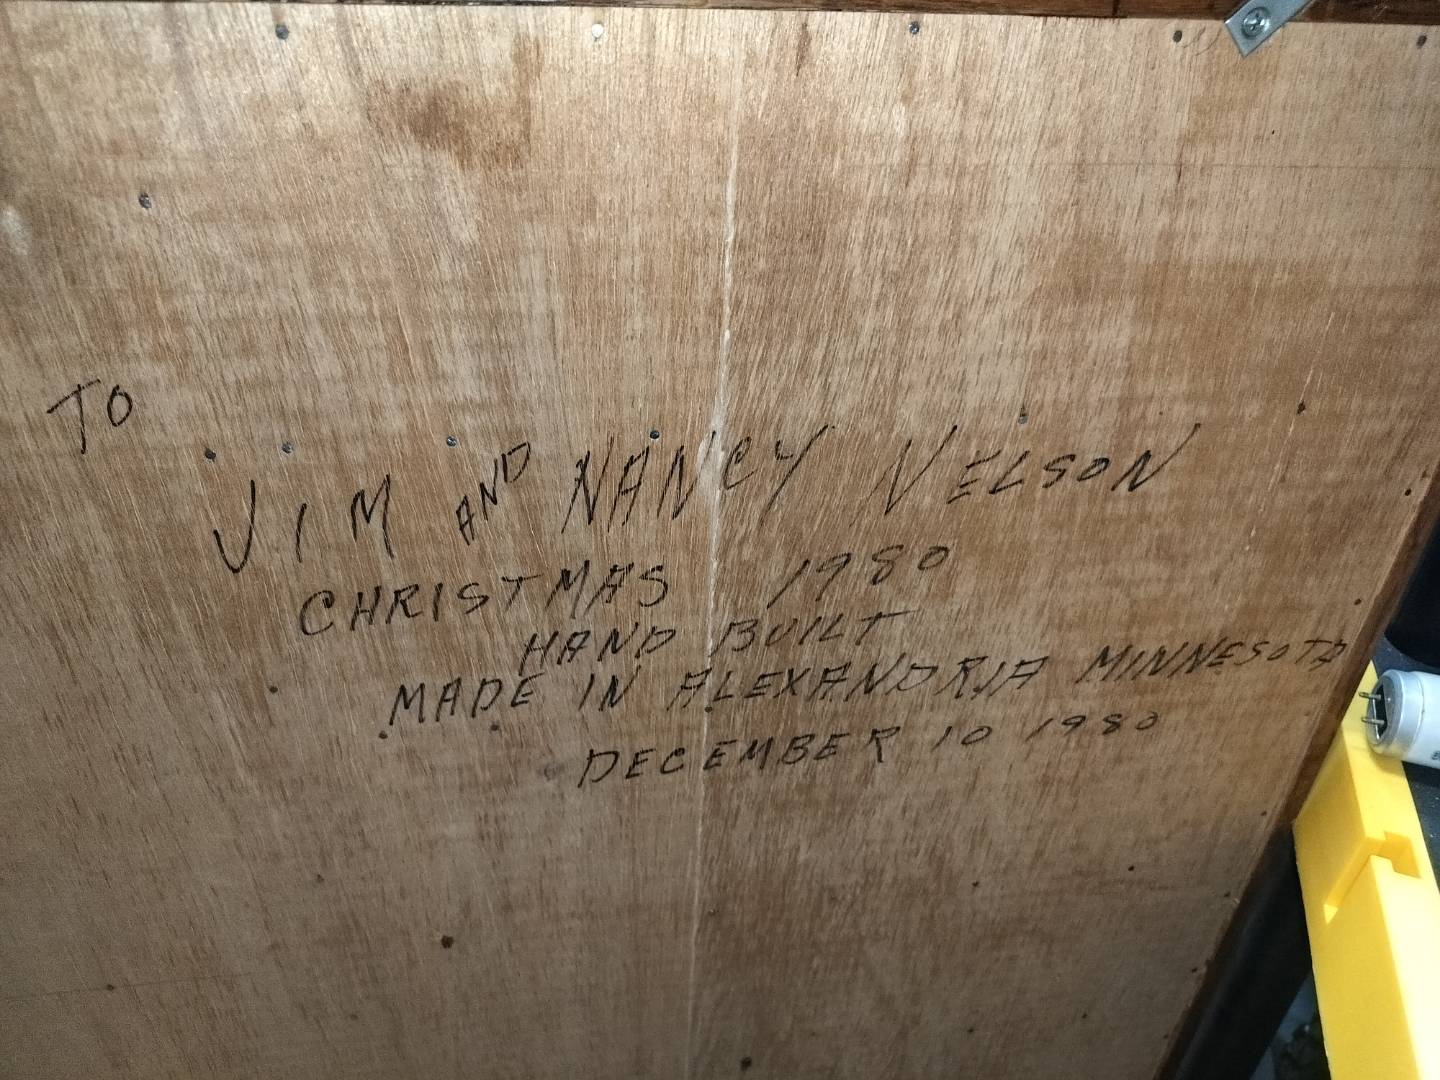 TO
JIM AND NANCY NELSON
CHRISTMAS 1980
HAND BUILT
MADE IN ALEXANDRIA MINNESOTA
DECEMBER 10 1980